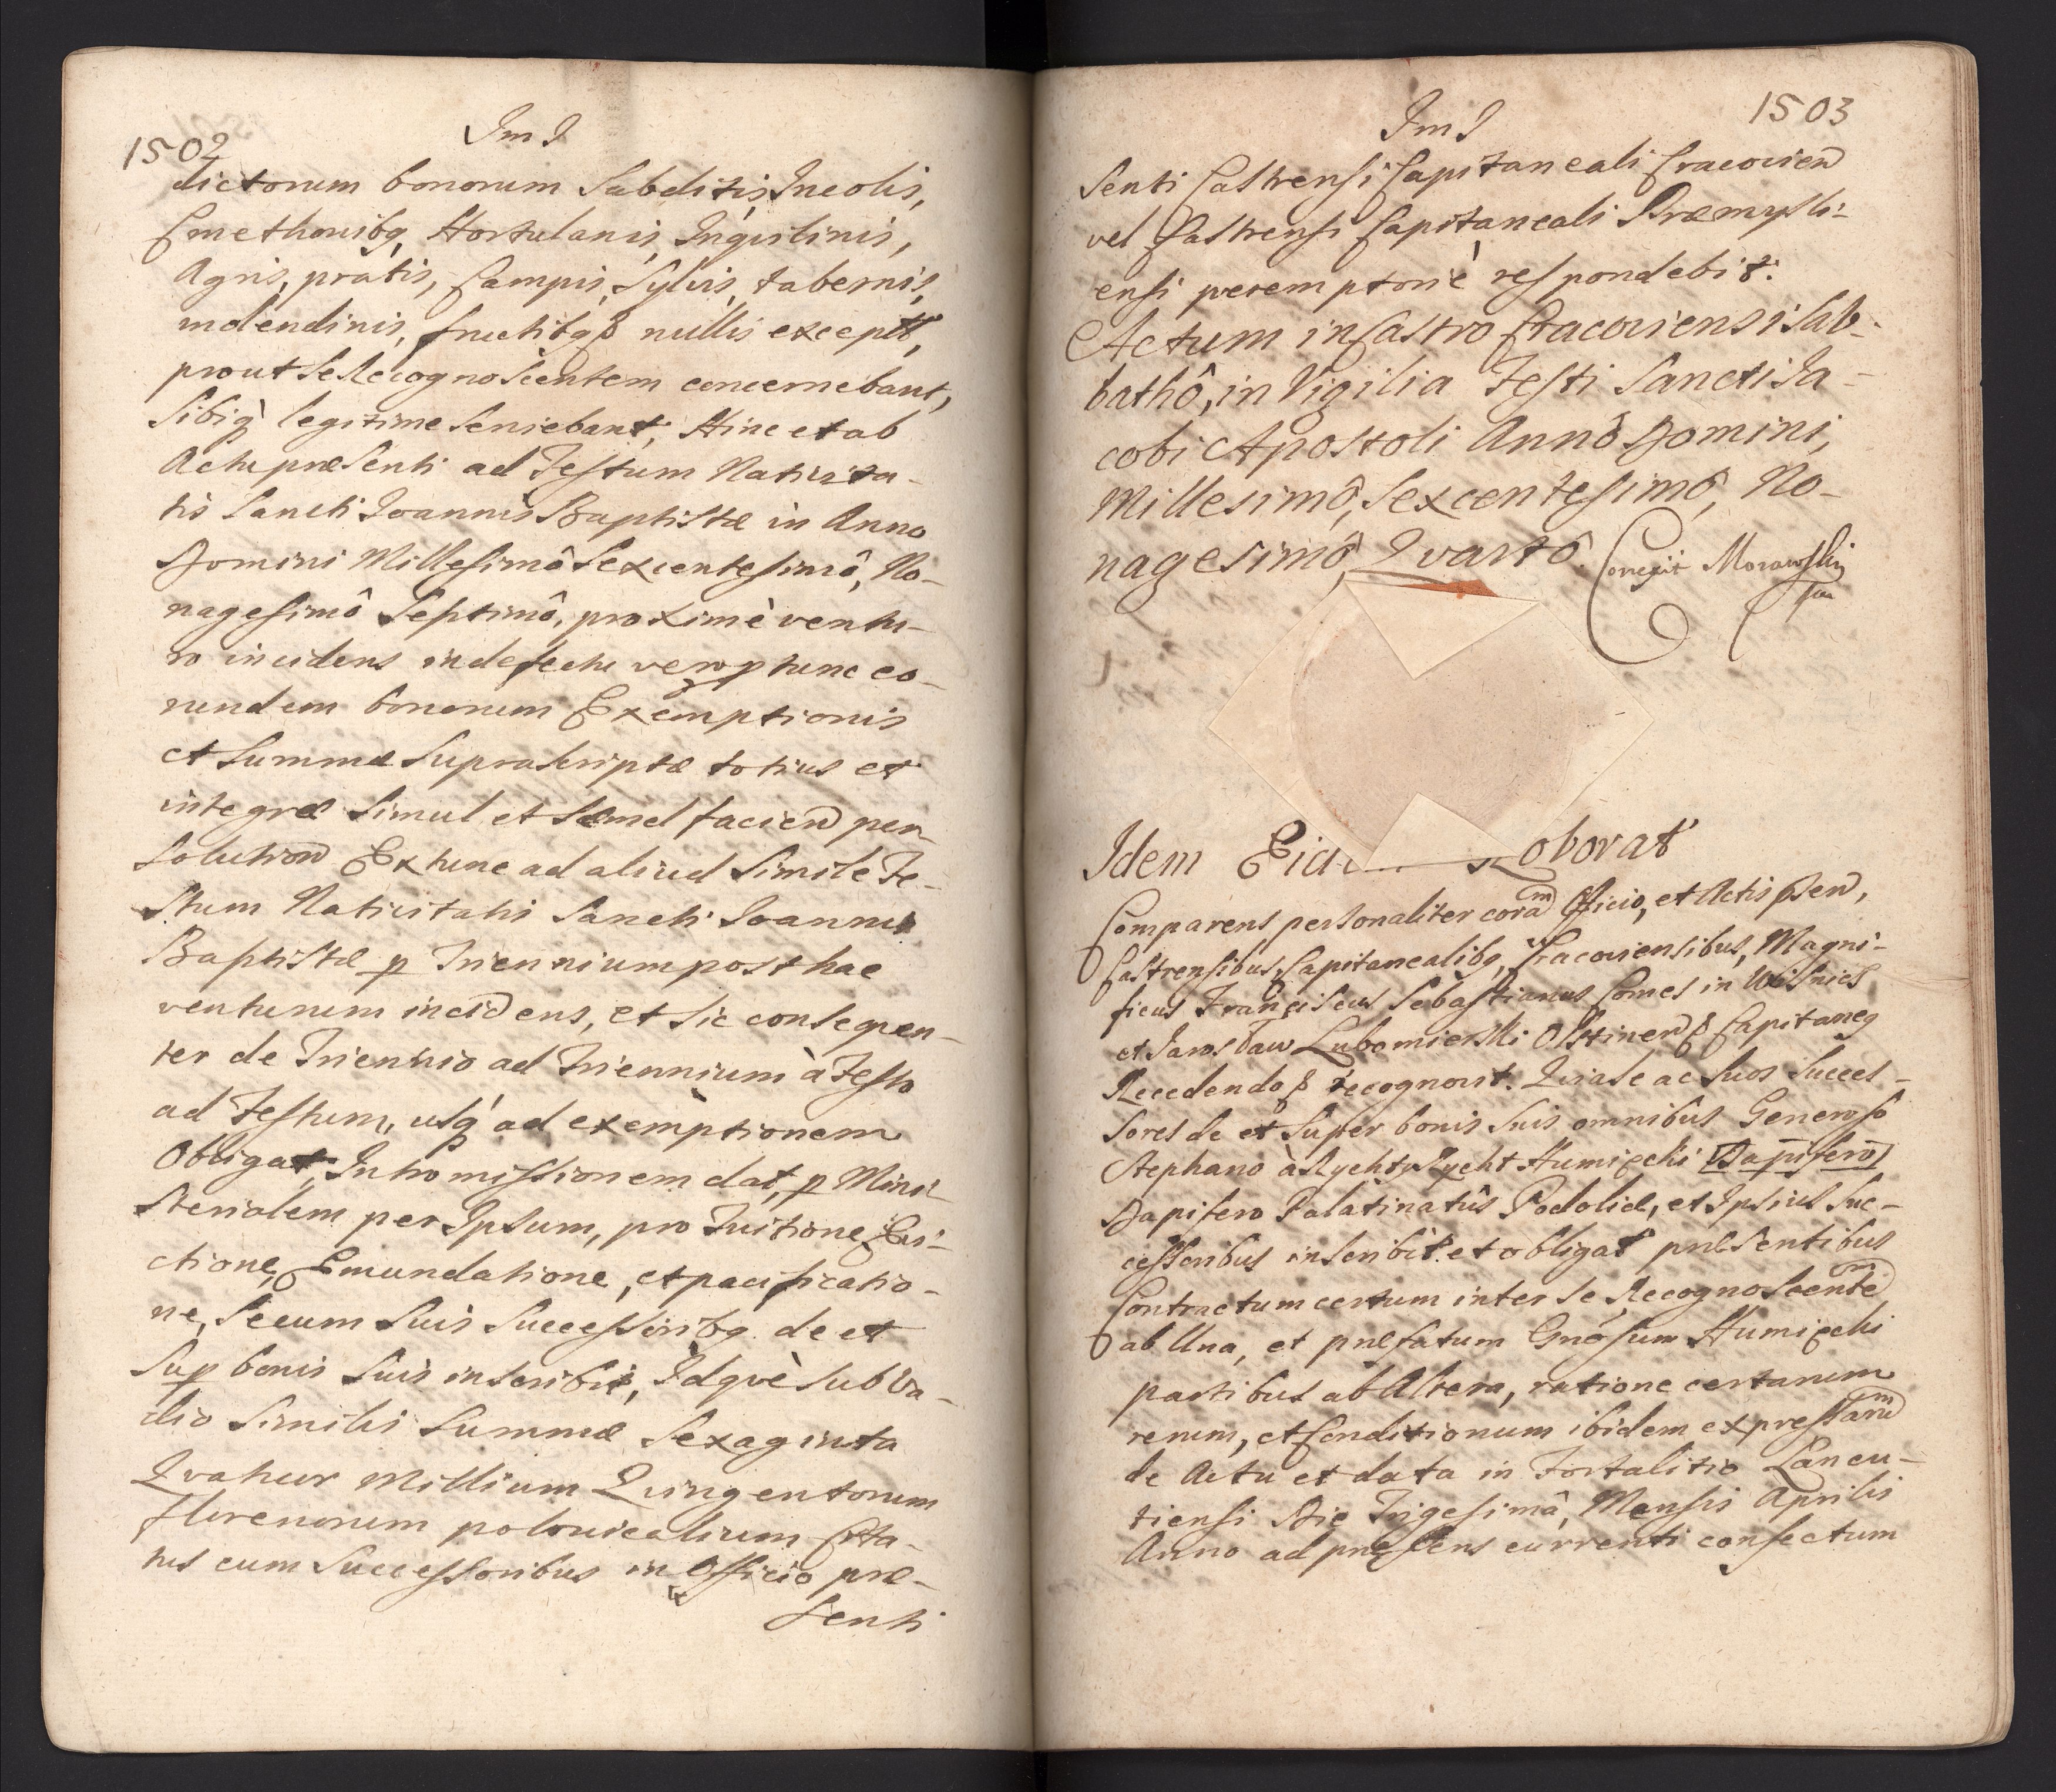 1502
Im I
dictorum bonorum Subditis, Incolis,
Cmethonibq, Hortulanis, Inquilinis,
Agris, pratis, Campis, Sylvis, tabernis,
molendinis, fructibq nullis except,
prout Se Recognoscentem concernebant,
Sibiq legitime Serviebant; Hinc et ab
Actu præsenti ad Festum Nativita-
tis Sancti Joannis Baptistæ in Anno
Domini Millesimô Sexcentesimô, No-
nagesimô Septimô, proximè ventu-
ro incidens in defectu vero p tunc eo-
rundem bonorum Exemptionis
et Summæ Suprascriptæ totius et
integræ Simul et Semel facien per-
solution Ex tunc ad aliud Simile Fe-
stum Nativitatis Sancti Joannis
Baptistæ p Triennium post hac
venturum incidens, et Sic consequen-
ter de Triennio ad Triennium à Festo
ad Festum, usq ad exemptionem
Obligat, Intromissionem dat, p Mini-
sterialem per Ipsum, pro Tuitione Evi-
ctione, Emundatione, et pacificatio-
ne, Secum Suis Successoribq de et
Sup bonis Suis inscribit, Idqvè Sub va-
dio Simili Summæ Sexaginta
Qvatuor Millium Quingentorum
florenorum polonicalium Cita-
tus cum Successoribus in Officio præ-
senti
1503
Im I
Senti Castrensi Capitaneali Cracovien
vel Castrensi Capitaneali Præmysli-
ensi peremptoriè respondebit.
Actum in Castro Cracoviensi Sab-
bathô, in Vigilia Festi Sancti Ja-
cobi Apostoli Annô Domini,
Millesimô, Sexcentesimô, No-
nagesimô Qvartô. Correxit Morawski
Idem Roborat
Comparens personaliter coram Officio, et Actis psen,
Castrensibus, Capitanealibq, Cracoviensibus, Magni-
ficus Franciscus Sebastianus Comes in Wisnicz
et Jarosław Lubomierski Olstinen Capitaneq
Recedendo recognovit. Qvia Se ac Suos Succes-
sores de et Super bonis Suis omnibus Generoso
Stephano à Rychty Rycht Humięcki Dapifero
Dapifero Palatinatûs Podoliæ, et Ipsius Suc-
cessoribus inscribit et obligat præsentibus
Contractum certum inter Se Recognoscentem
ab Una, et præfatum Gnosum Humięcki
partibus ab Altera, ratione certarum
rerum, et Conditionum ibidem expressarum
de Actu et data in Fortalitio Lancu-
tiensi Die Trigesimâ, Mensis Aprilis
Anno ad præsens currenti confectum